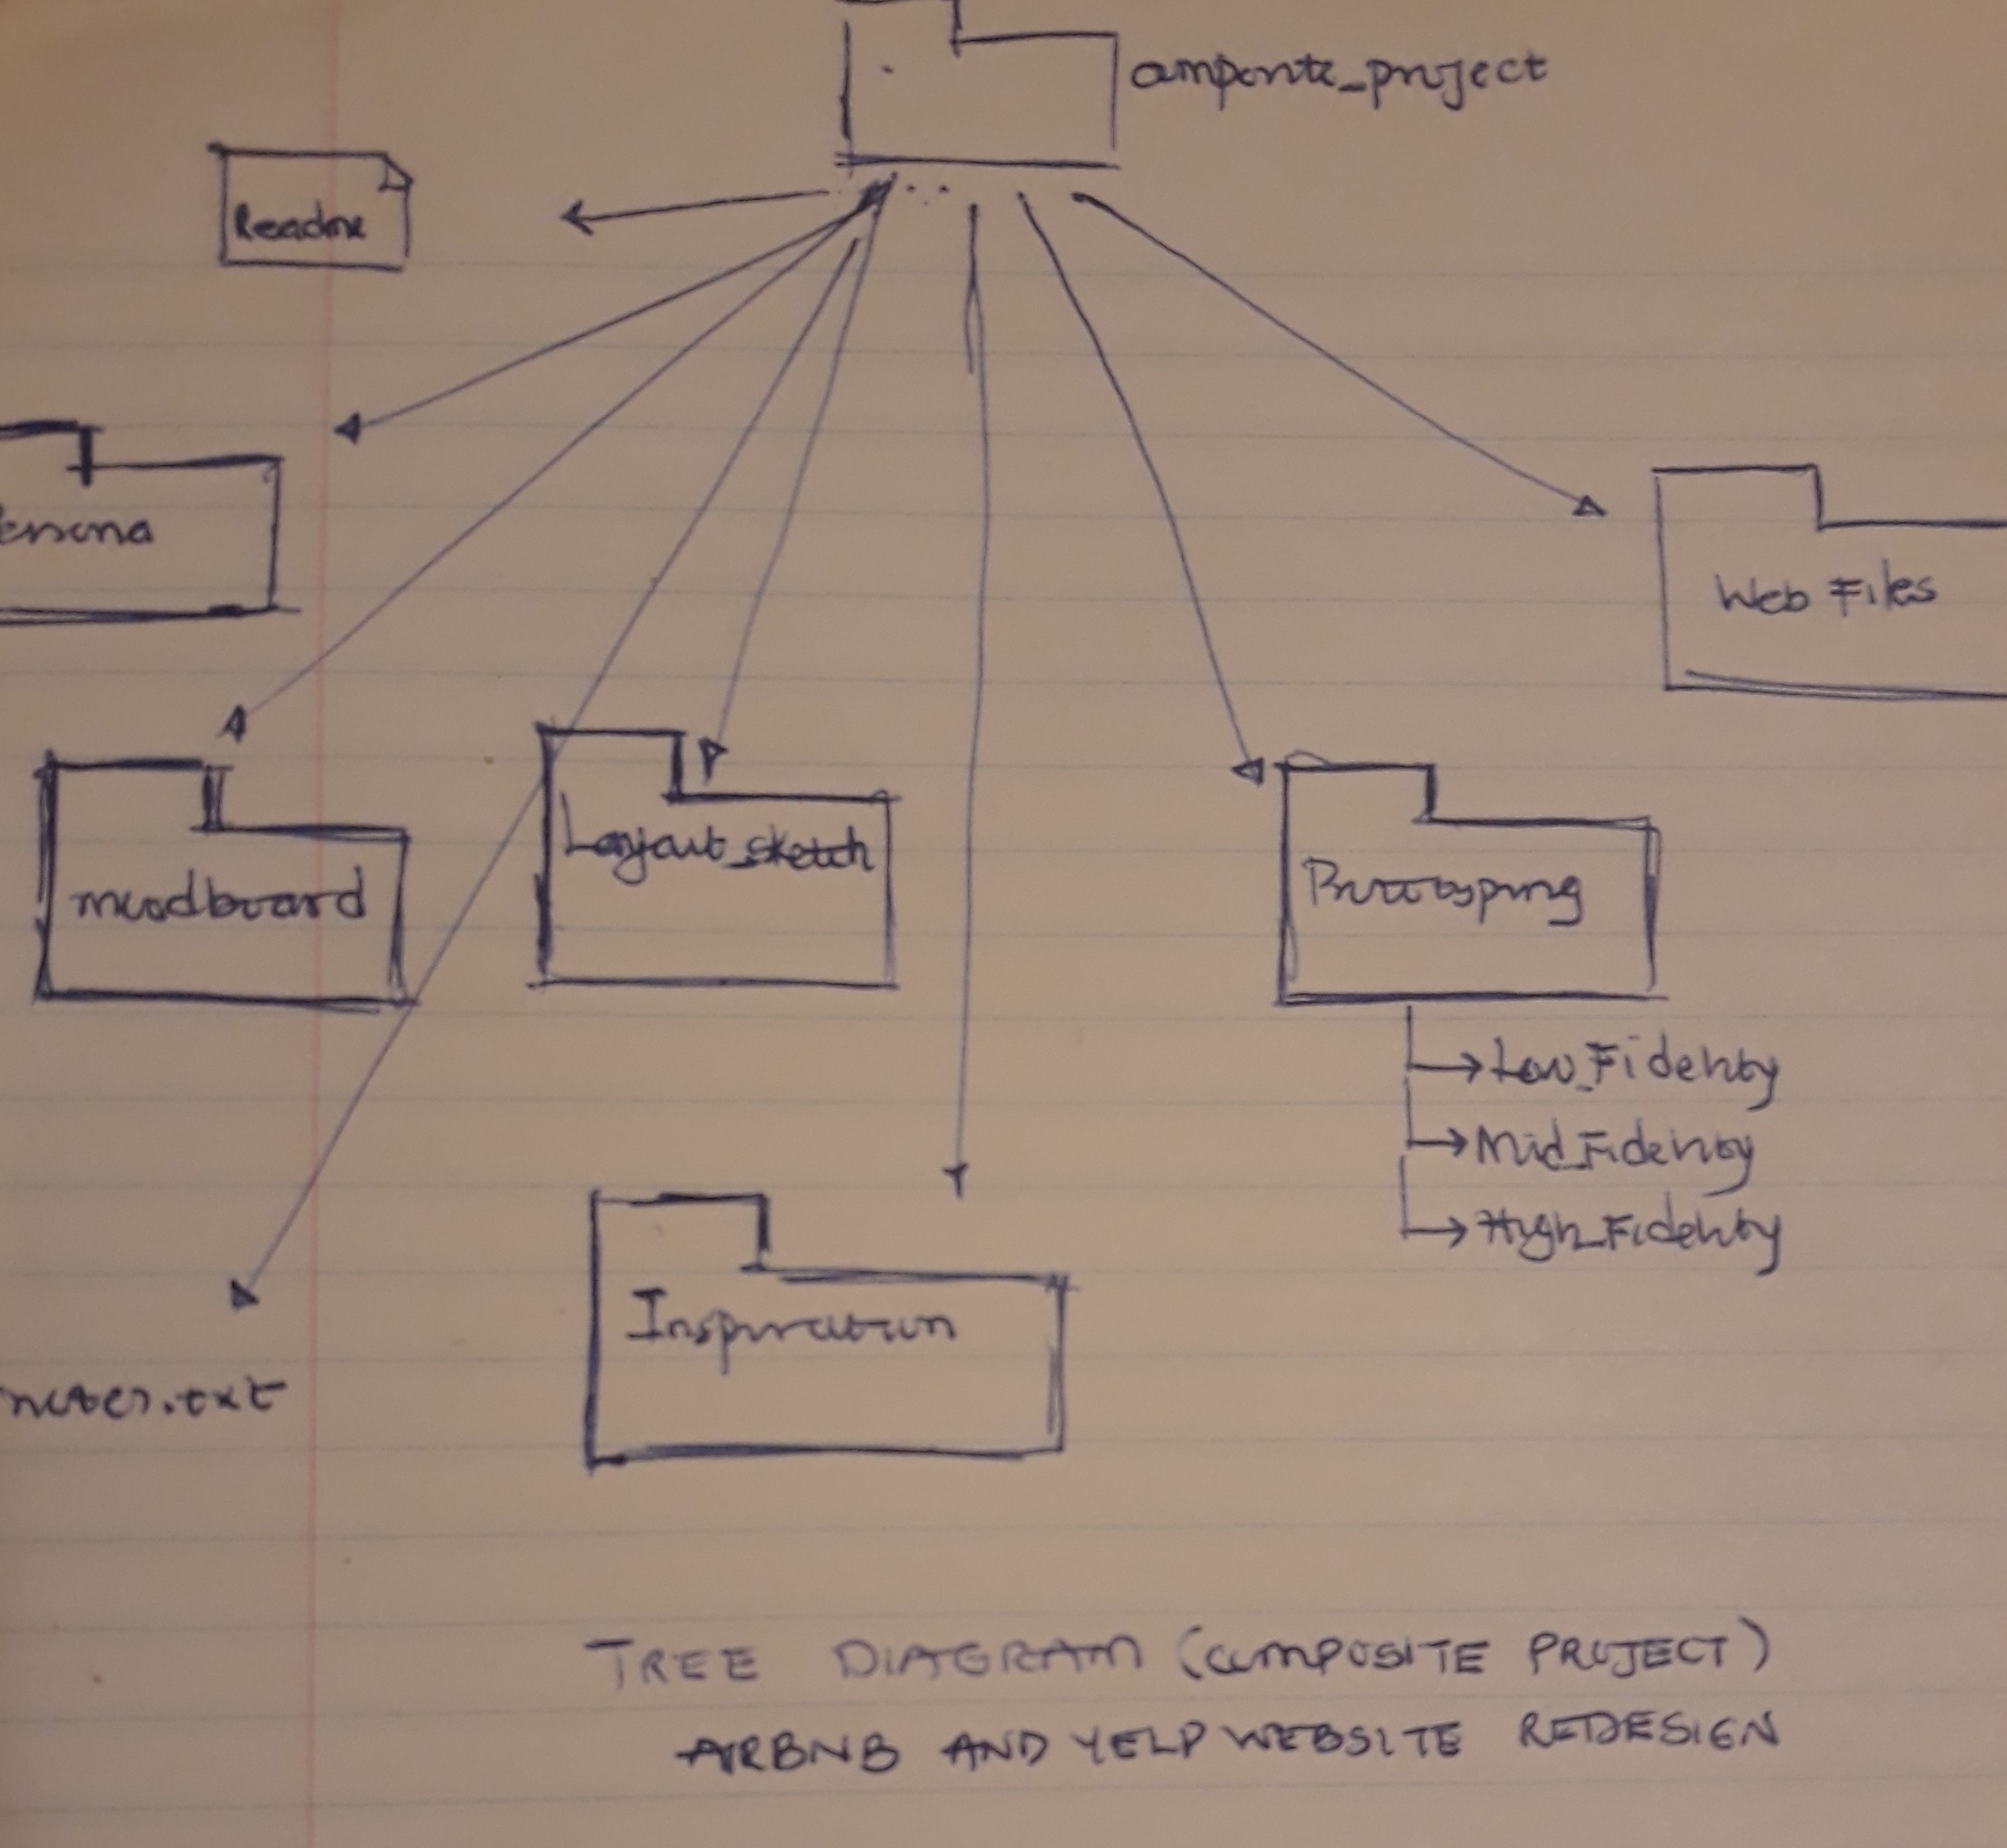 composite_project
Readme
ersona
Web Files
moodboard
Layout_sketch
Prototyping
Low_Fidelity
Mid_Fidelity
High_Fidelity
Inspiration
notes.txt
TREE DIAGRAM (COMPOSITE PROJECT)
AIRBNB AND YELP WEBSITE REDESIGN